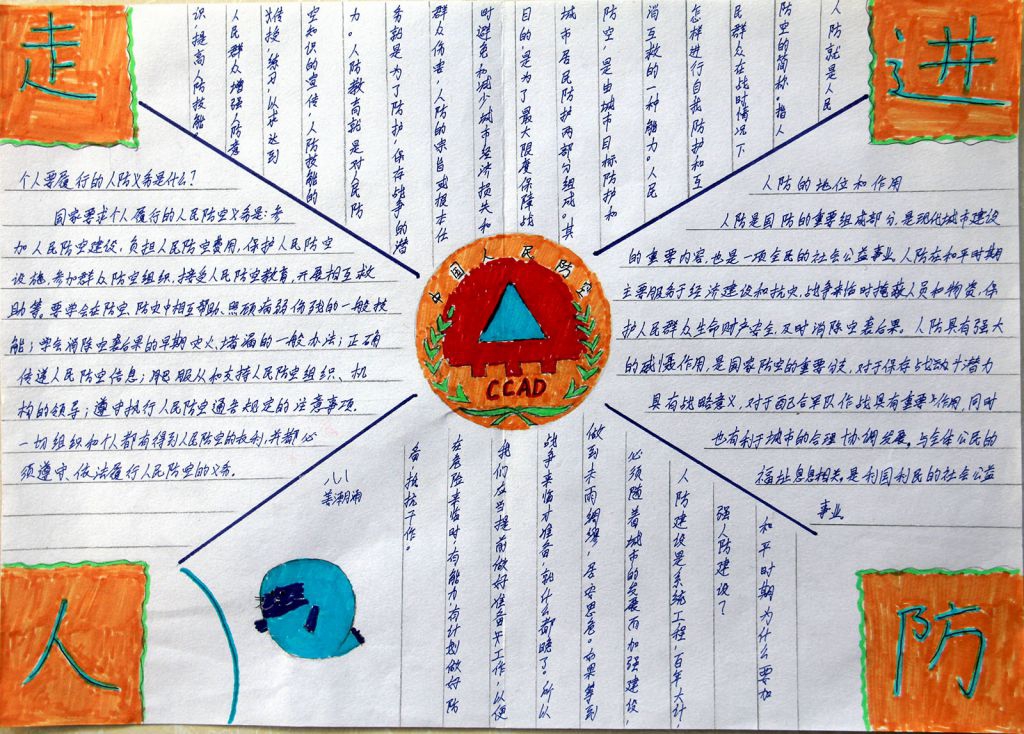 走
进
人
防
中国人民防空
CCAD
人防就是人民
防空的简称。指人
民群众在战时情况下
怎样进行自我防护和互
消互救的一种能力。人民
防空,是由城市目标防护和
城市居民防护两部分组成。其
目的,是为了最大限度保障战
时避免和减少城市经济损失和
群众伤害,人防的宗旨或根本任
务就是为了防护,保存战争的潜
力。人防教育就是对人民防
空知识的宣传,人防技能的
传授,练习,以求达到
人民群众增强人防意
识提高人防技能。
个人要履行的人防义务是什么?
国家要求个人履行的人民防空义务是:参
加人民防空建设,负担人民防空费用,保护人民防空
设施,参加群众防空组织,接受人民防空教育,开展相互救
助等。要学会在防空、防灾中相互帮助、照顾病弱伤残的一般技
能;学会消除空袭后果的早期灾火、堵漏的一般办法;正确
传递人民防空信息;服从和支持人民防空组织、机
构的领导;遵守执行人民防空通告规定的注意事项。
一切组织和个人都有得到人民防空的权利,并都必
须遵守、依法履行人民防空的义务。
八1
姜湘湘
人防的地位和作用
人防是国防的重要组成部分,是现代城市建设
的重要内容,也是一项全民的社会公益事业,人防在和平时期
主要服务于经济建设和抗灾,战争来临时掩蔽人员和物资,保
护人民群众生命财产安全,及时消除空袭后果。人防具有强大
的威慑作用,是国家防空的重要分支,对于保存战争潜力
具有战略意义,对于配合军队作战具有重要作用,同时
也有利于城市的合理协调发展。与全体公民的
福祉息息相关,是利国利民的社会公益
事业。
和平时期为什么要加
强人防建设?
人防建设是系统工程,百年大计,
必须随着城市的发展而加强建设,
做到未雨绸缪,居安思危。如果等到
战争来临才准备,就什么都晚了。所以
我们应当提前做好准备工作,以便
在危险来临时,有能力有计划做好防
备抵抗工作。